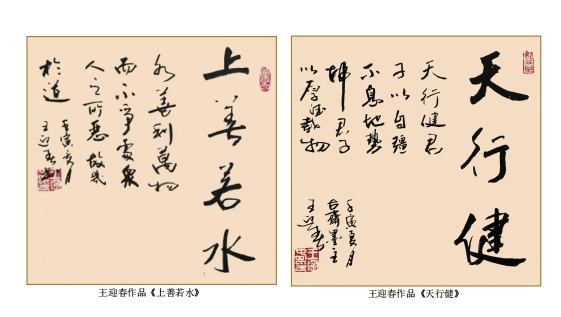 上善若水
水善利萬物
而不爭處眾
人之所惡故幾
於道
壬寅 月
王迎春
天行健
天行健君
子以自疆
不息地勢
坤君子
以厚德載物
壬寅夏月
墨主
王迎春
王迎春作品《上善若水》
王迎春作品《天行健》